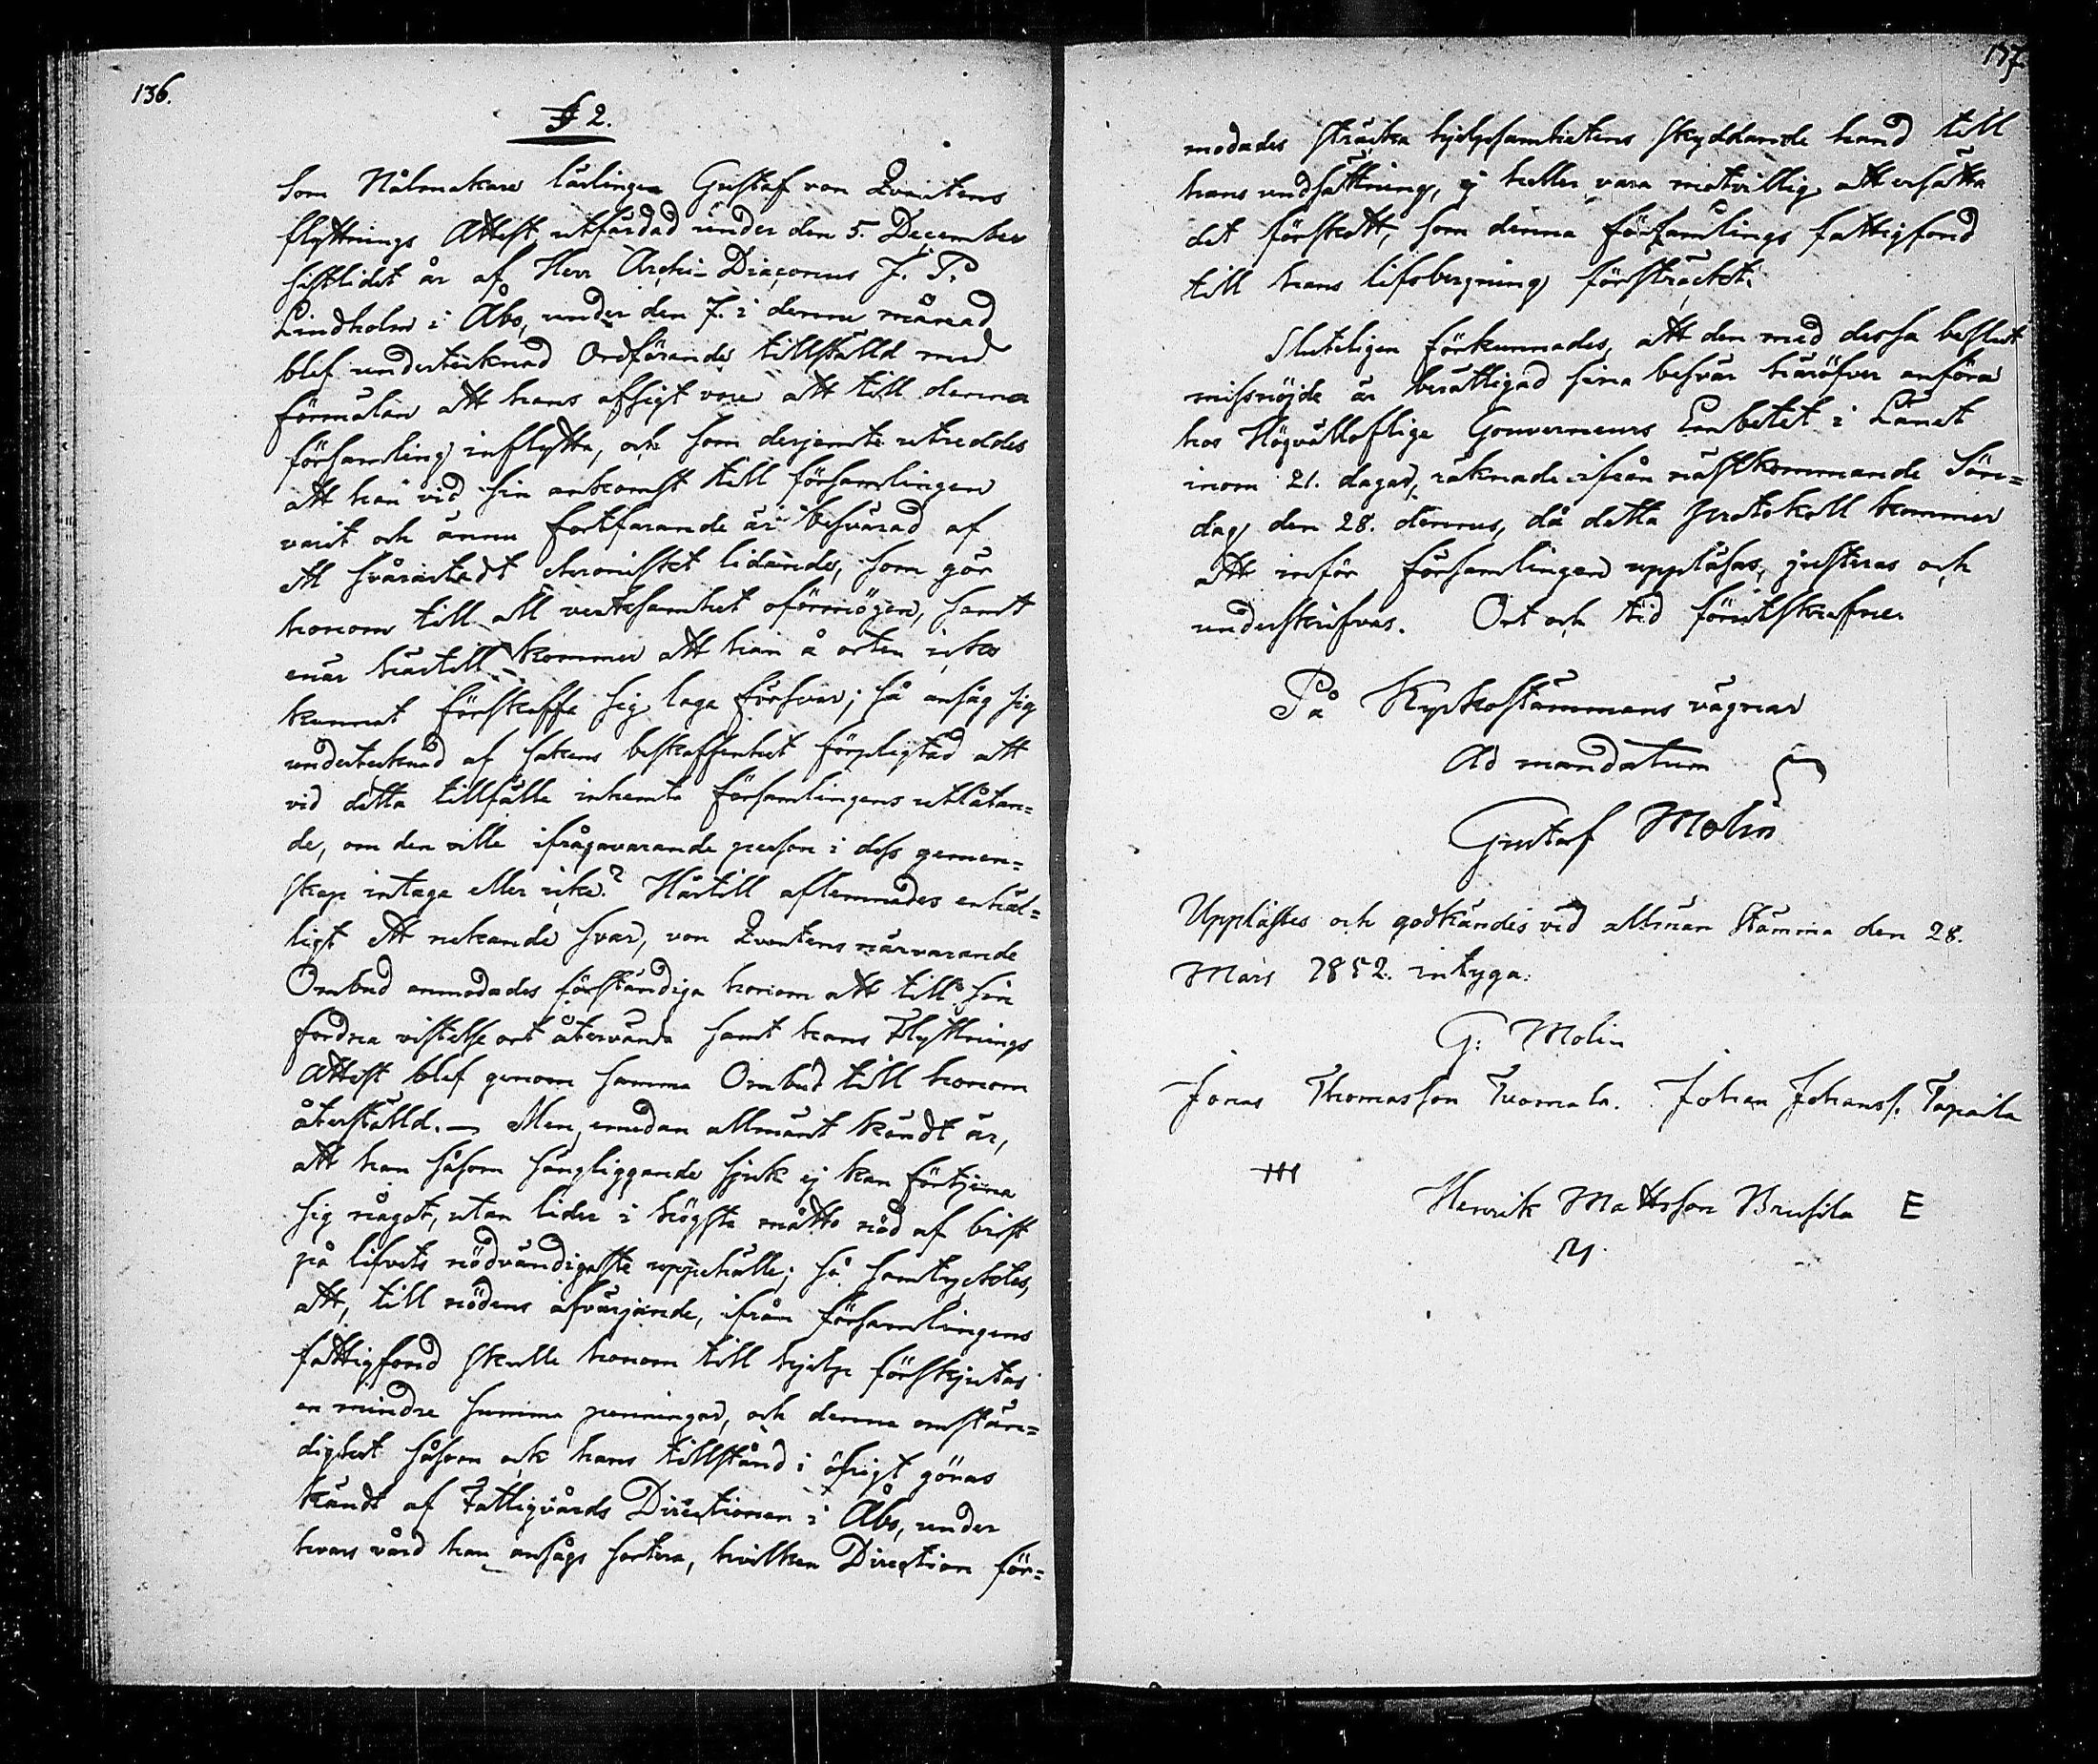 136.
§ 2.
Som Nålmakare lärlingen Gustaf von Qvantens
flyttnings Attest utfärdad under den 5. December
sistlidet år af Herr Archi-Diaconus J. P.
Lindholm i Åbo, under den 7. i denna månad
blef undertecknad Ordförande tillställd med
förmälan att hans afsigt vore att till denna
församling inflytta, och som derjemte utreddes
att han vid sin ankomst till församlingen
varit och ännu fortfarande är besvärad af
ett svårartadt chroniskt lidande, som gör
honom till all verksamhet oförmögen, samt
enär härtill kommer att han å orten icke
kunnat förskaffa sig laga försvar; så ansåg sig
undertecknad af sakens beskaffenhet förpligtad att
vid detta tillfälle inhemta församlingens utlåtan=
de, om den ville ifrågavarande person i dess gemen=
skap intaga eller icke? Härtill aflemnades enhäl=
ligt ett nekande svar, von Qvantens närvarande
Ombud anmodades förständiga honom att till sin
fordna vistelse ort återvända samt hans Flyttnings
Attest blef genom samma Ombud till honom
återställd. — Men, emedan allmänt kändt är,
att han såsom sängliggande sjuk ej kan förtjena
sig något, utan lider i högsta måtto nöd af brist
på lifvets nödvändigaste uppehälle; så samtycktes,
att, till nödens afvärjande, ifrån församlingens
fattigfond skulle honom till hjelp förskjutas
en mindre summa penningar, och denna omstän=
dighet såsom ock hans tillstånd i öfrigt göras
kändt af Fattigvårds Directionen i Åbo, under
hvars vård han ansågs sortera, hvilken Direction för=
137
modades sträcka hjelpsamhetens skyddande hand till
hans undsättning, ej heller vara motvillig att ersätta
det förskott, som denna församlings fattigfond
till hans lifsbergning försträckt.
Sluteligen förkunnades, att den med dessa beslut
missnöjde är berättigad sina besvär häröfver anföra
hos Högvällofliga Gouverneurs Embetet i Länet
inom 21. dagar, räknade ifrån nästkommande Sön=
dag den 28. dennes, då detta protokoll kommer
att inför församlingen uppläsas, justeras och
underskrifvas. Ort och tid förutskrefne.
På Kyrkostämmans vägnar
Ad mandatum
Gustaf Molin
Upplästes och godkändes vid allmän Stämma den 28.
Mars 1852. intyga:
G. Molin
Jonas Thomasson Tuomala. Johan Johanss. Tapaila
Henrik Mattsson Brusila E